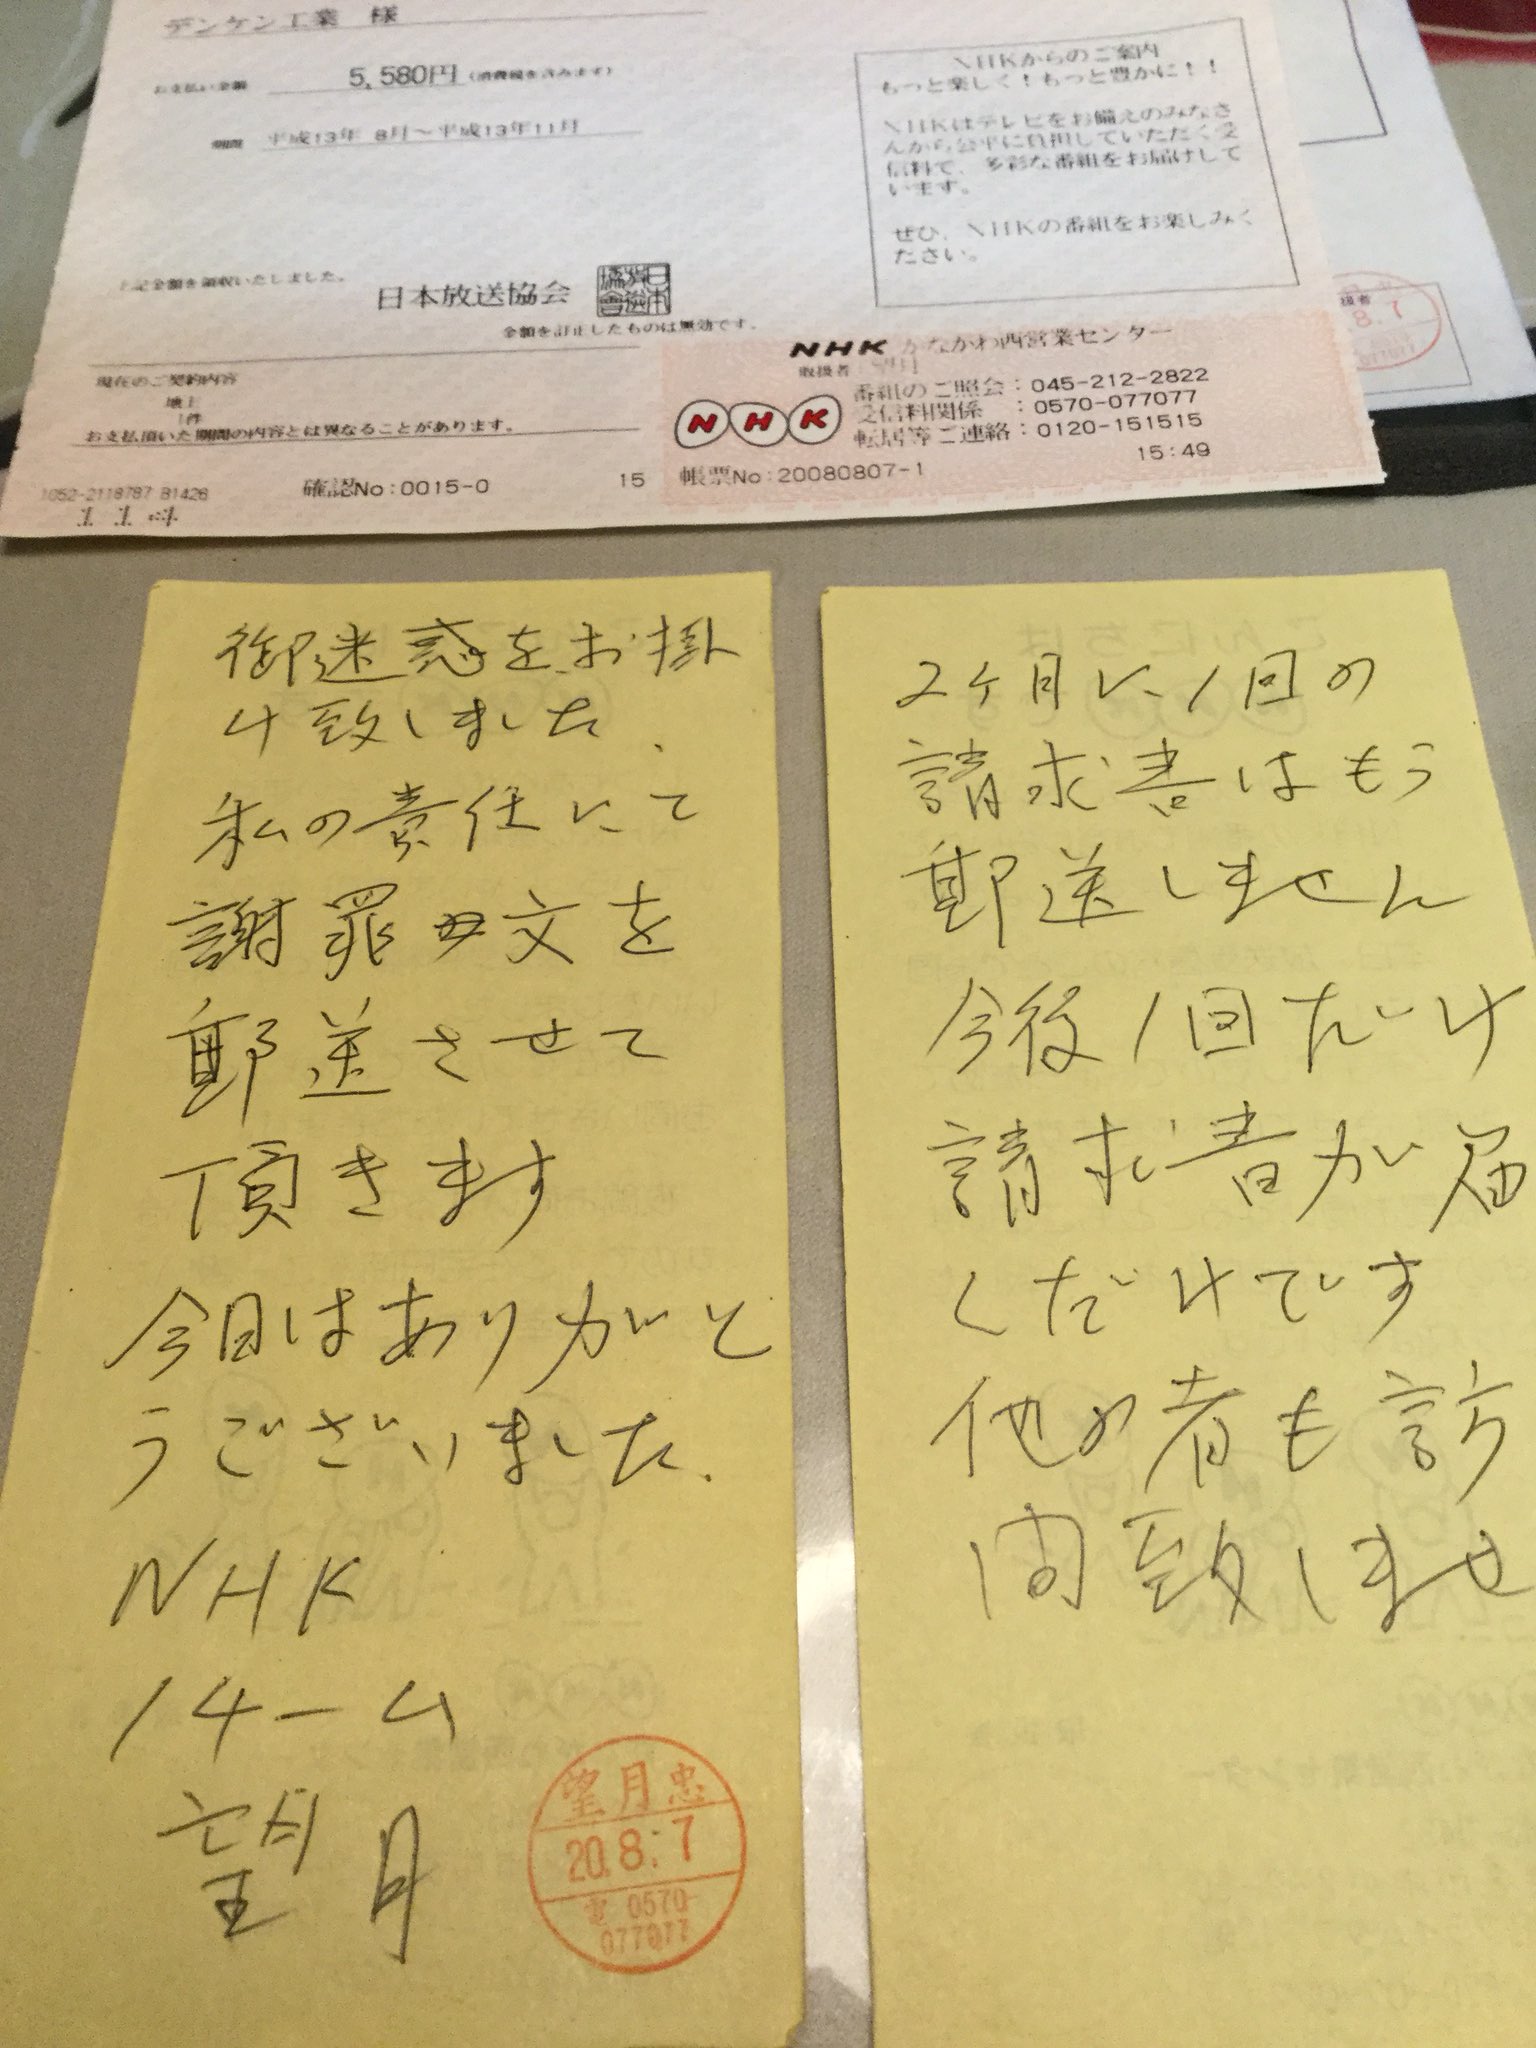 デンケン工業 様
お支払い金額 5,580円 (消費税を含みます)
期間 平成13年 8月～平成13年11月
上記金額を領収いたしました。
日本放送協会
日本放送協會
金額を訂正したものは無効です。
NHKからのご案内
もっと楽しく!もっと豊かに!!
NHKはテレビをお備えのみなさ
んから公平に負担していただく受
信料で、多彩な番組をお届けして
います。
ぜひ、NHKの番組をお楽しみく
ださい。
現在のご契約内容
地上
1件
お支払頂いた期間の内容とは異なることがあります。
1052-2118787 81426
確認No:0015-0
15
NHK かながわ西営業センター
取扱者 望月
NHK
番組のご照会:045-212-2822
受信料関係 :0570-077077
転居等ご連絡:0120-151515
15:49
帳票No:20080807-1
扱者
8.7
御迷惑をお掛
け致しました、
私の責任にて
謝罪文を
郵送させて
頂きます
今日はありがと
うございました、
NHK
1チーム
望月
望月忠
20.8.7
電 0570-
077077
2ヶ月に1回の
請求書はもう
郵送しません
今後1回だけ
請求書が届
くだけです
他の者も訪
問致しませ